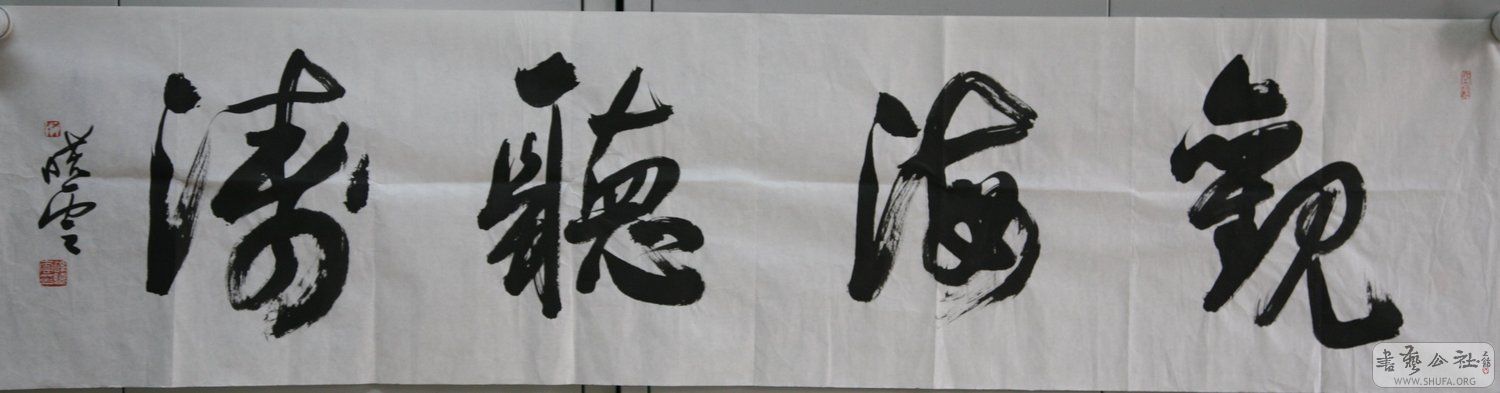 觀海聽濤
曉雲
書藝公社
WWW.SHUFA.ORG